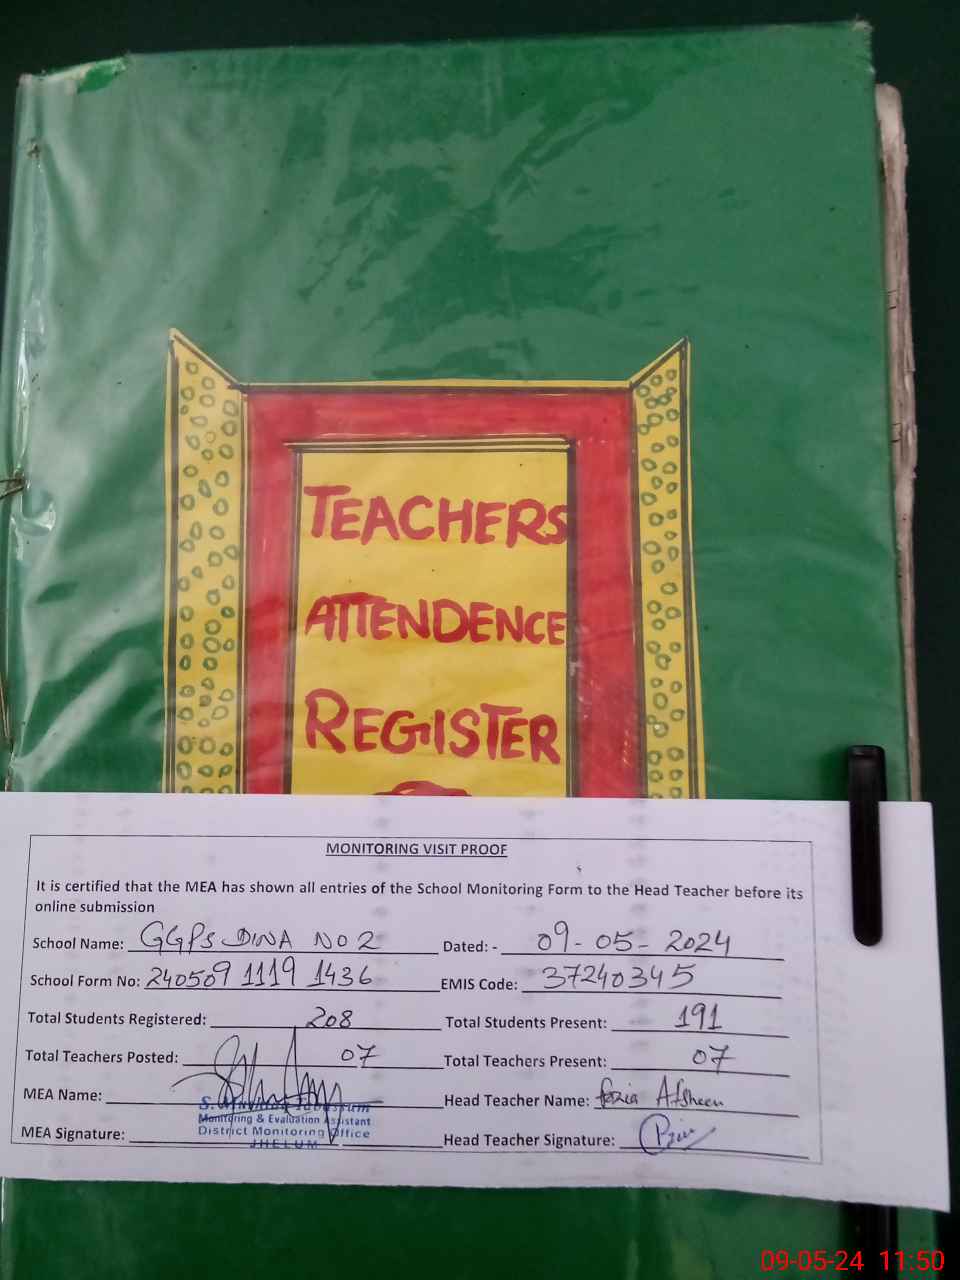 TEACHERS
ATTENDENCE
REGISTER
MONITORING VISIT PROOF
It is certified that the MEA has shown all entries of the School Monitoring Form to the Head Teacher before its
online submission
School Name: GGPS DINA NO 2 Dated: - 09-05-2024
School Form No: 240509 1119 1436 EMIS Code: 37240345
Total Students Registered: 208 Total Students Present: 191
Total Teachers Posted: 07 Total Teachers Present: 07
MEA Name: Head Teacher Name: fozia Afsheen
S. Tabassum
Monitoring & Evaluation Assistant
District Monitoring Office
JHELUM
MEA Signature: Head Teacher Signature:
09-05-24 11:50